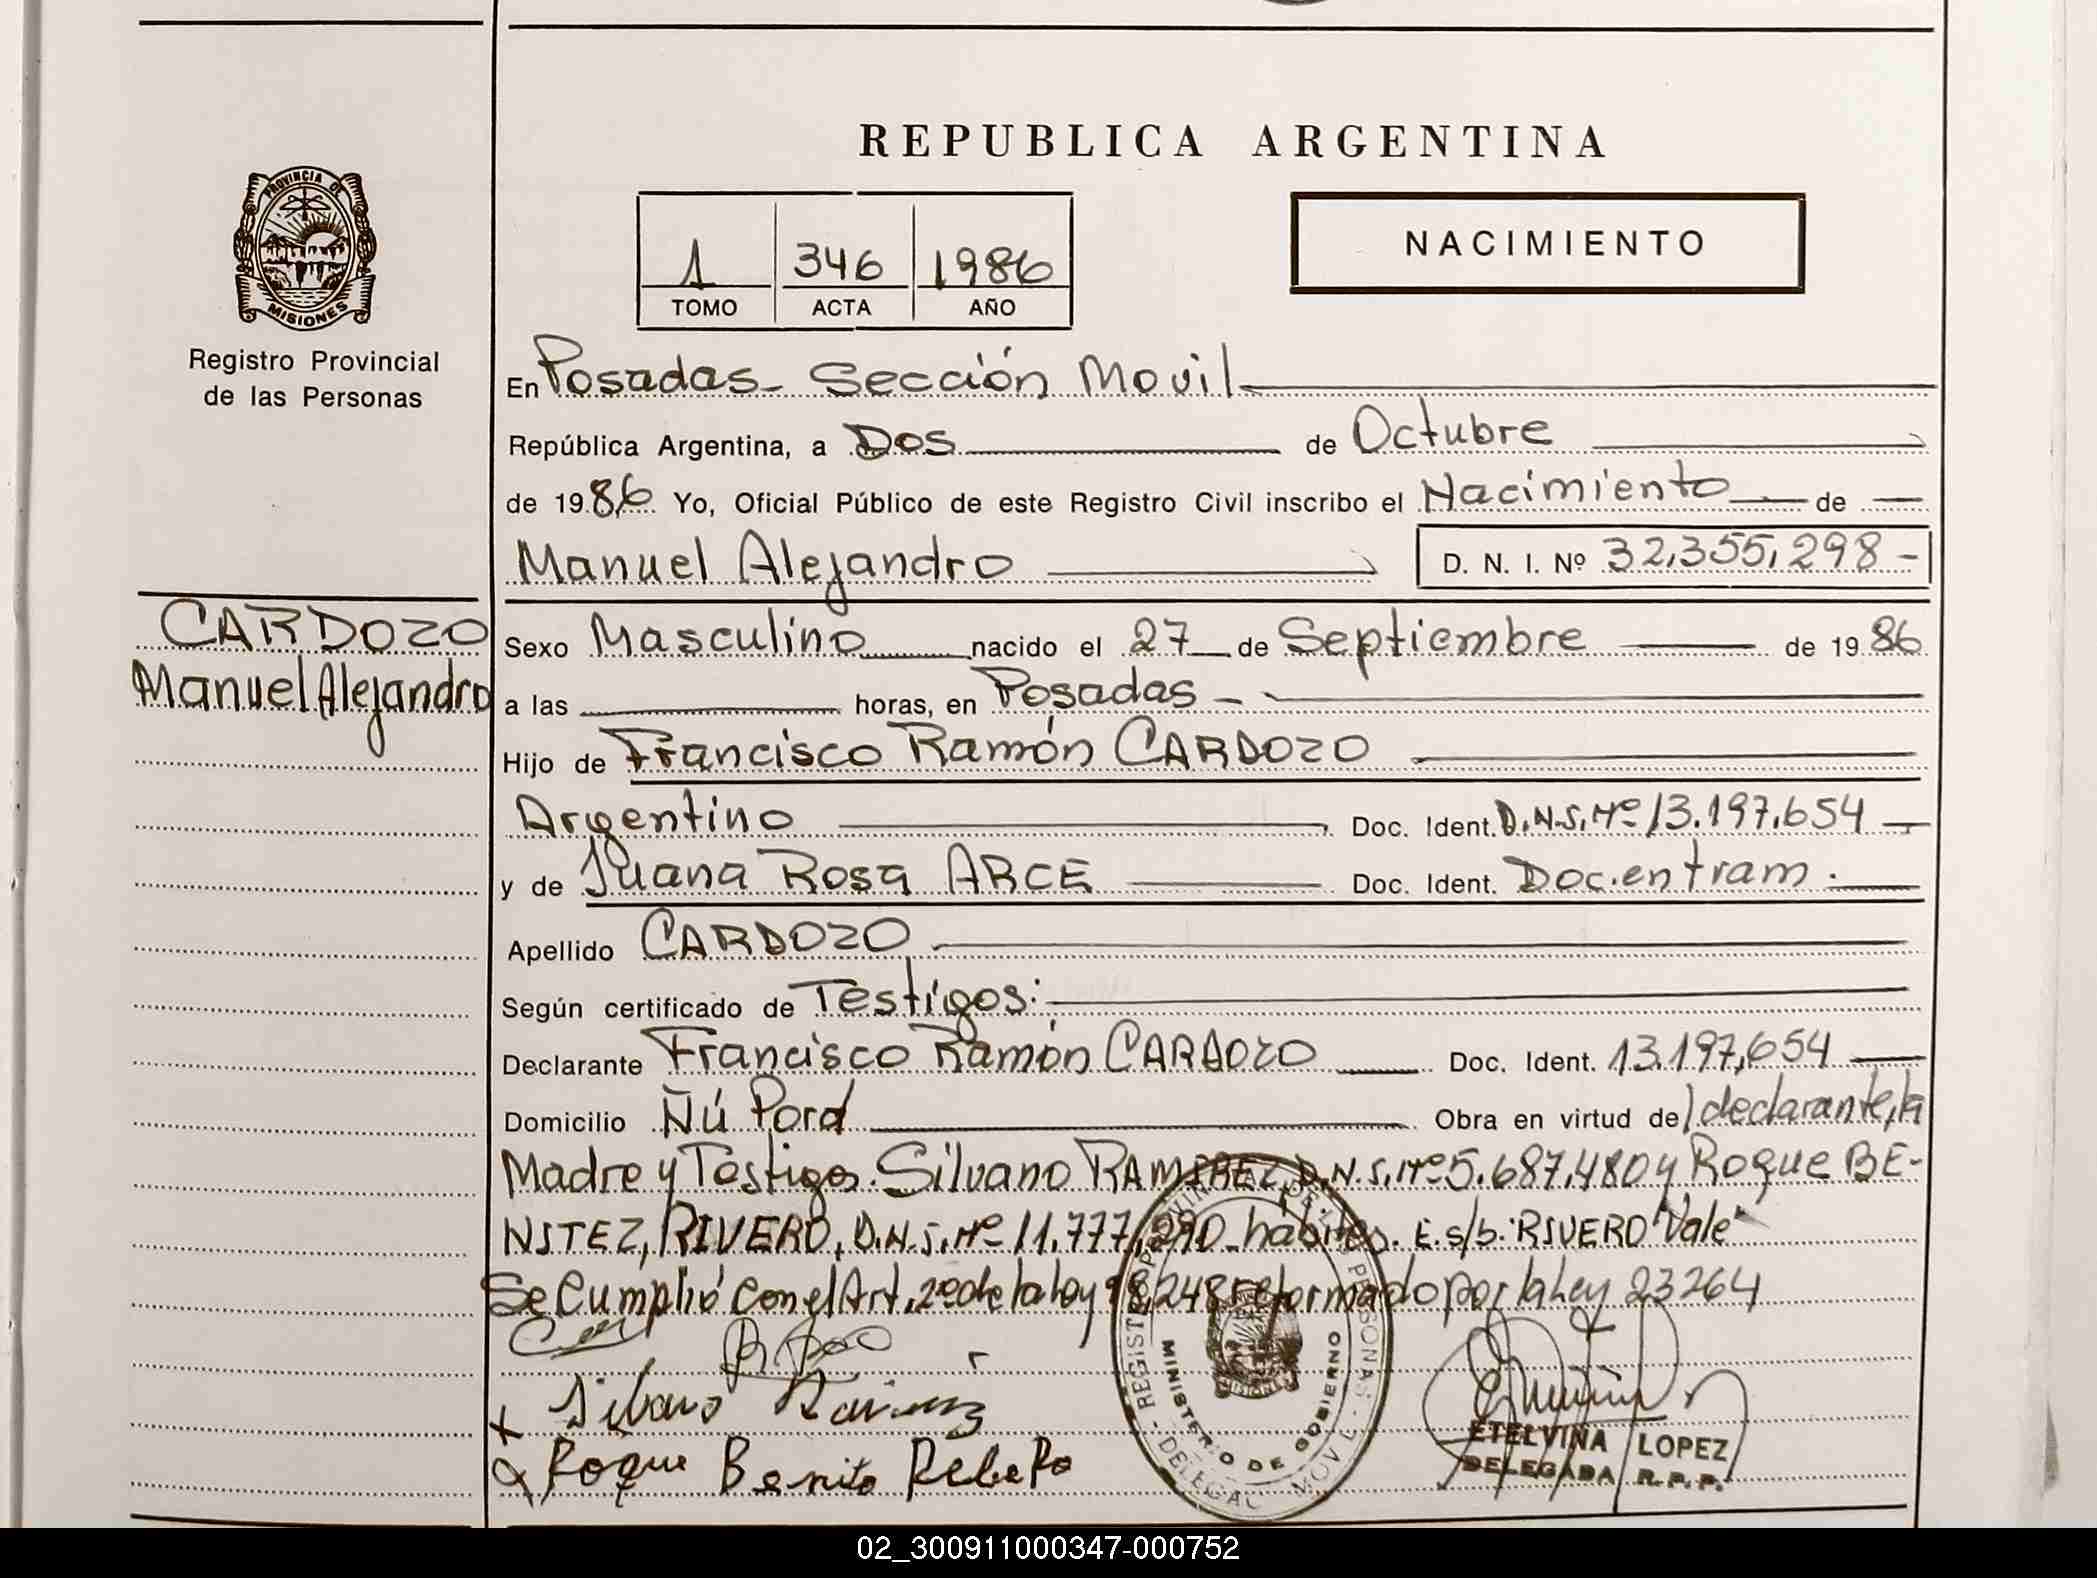 REPUBLICA ARGENTINA
PROVINCIA DE
MISIONES
Registro Provincial
de las Personas
1 346 1986
TOMO ACTA AÑO
NACIMIENTO
En Posadas - Sección Movil
República Argentina, a Dos de Octubre
de 1986 Yo, Oficial Público de este Registro Civil inscribo el Nacimiento de
Manuel Alejandro D. N. I. Nº 32,355,298-
CARDOZO
Manuel Alejandro
Sexo Masculino nacido el 27 de Septiembre de 1986
a las horas, en Posadas -
Hijo de Francisco Ramón CARDOZO
Argentino Doc. Ident. D.N.I. Nº 13.197.654
y de Juana Rosa ARCE Doc. Ident. Doc. en tram.
Apellido CARDOZO
Según certificado de Testigos:
Declarante Francisco Ramón CARDOZO Doc. Ident. 13.197,654
Domicilio Ñú Porá Obra en virtud de declarante, la
Madre y Testigos. Silvano RAMIREZ D.N.I. Nº 5.687.480 y Roque BE-
NITEZ, RIVERO, D.N.I. Nº 11.777,290 hábiles. E.s/b: RIVERO "Vale"
Se Cumplió con el Art. 2º de la Ley 18,248 reformado por la Ley 23264
Silvano Ramirez
Roque Benito
REGISTRO PROVINCIAL DE LAS PERSONAS
MINISTERIO DE GOBIERNO
MISIONES
ETELVINA LOPEZ
DELEGADA R.P.P.
02_300911000347-000752